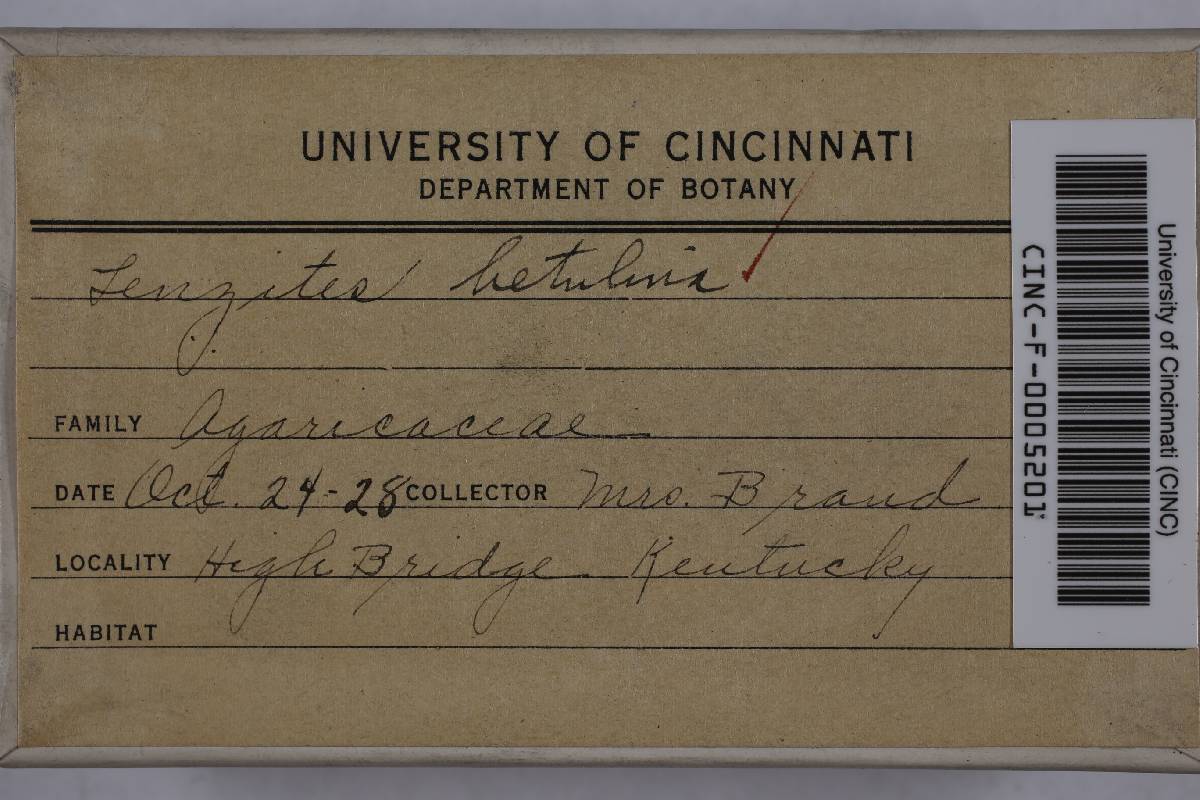 UNIVERSITY OF CINCINNATI
DEPARTMENT OF BOTANY
Lenzites betulina
FAMILY Agaricaceae
DATE Oct. 24-28 COLLECTOR Mrs. Braud
LOCALITY High Bridge Kentucky
HABITAT
University of Cincinnati (CINC)
CINC-F-0005201